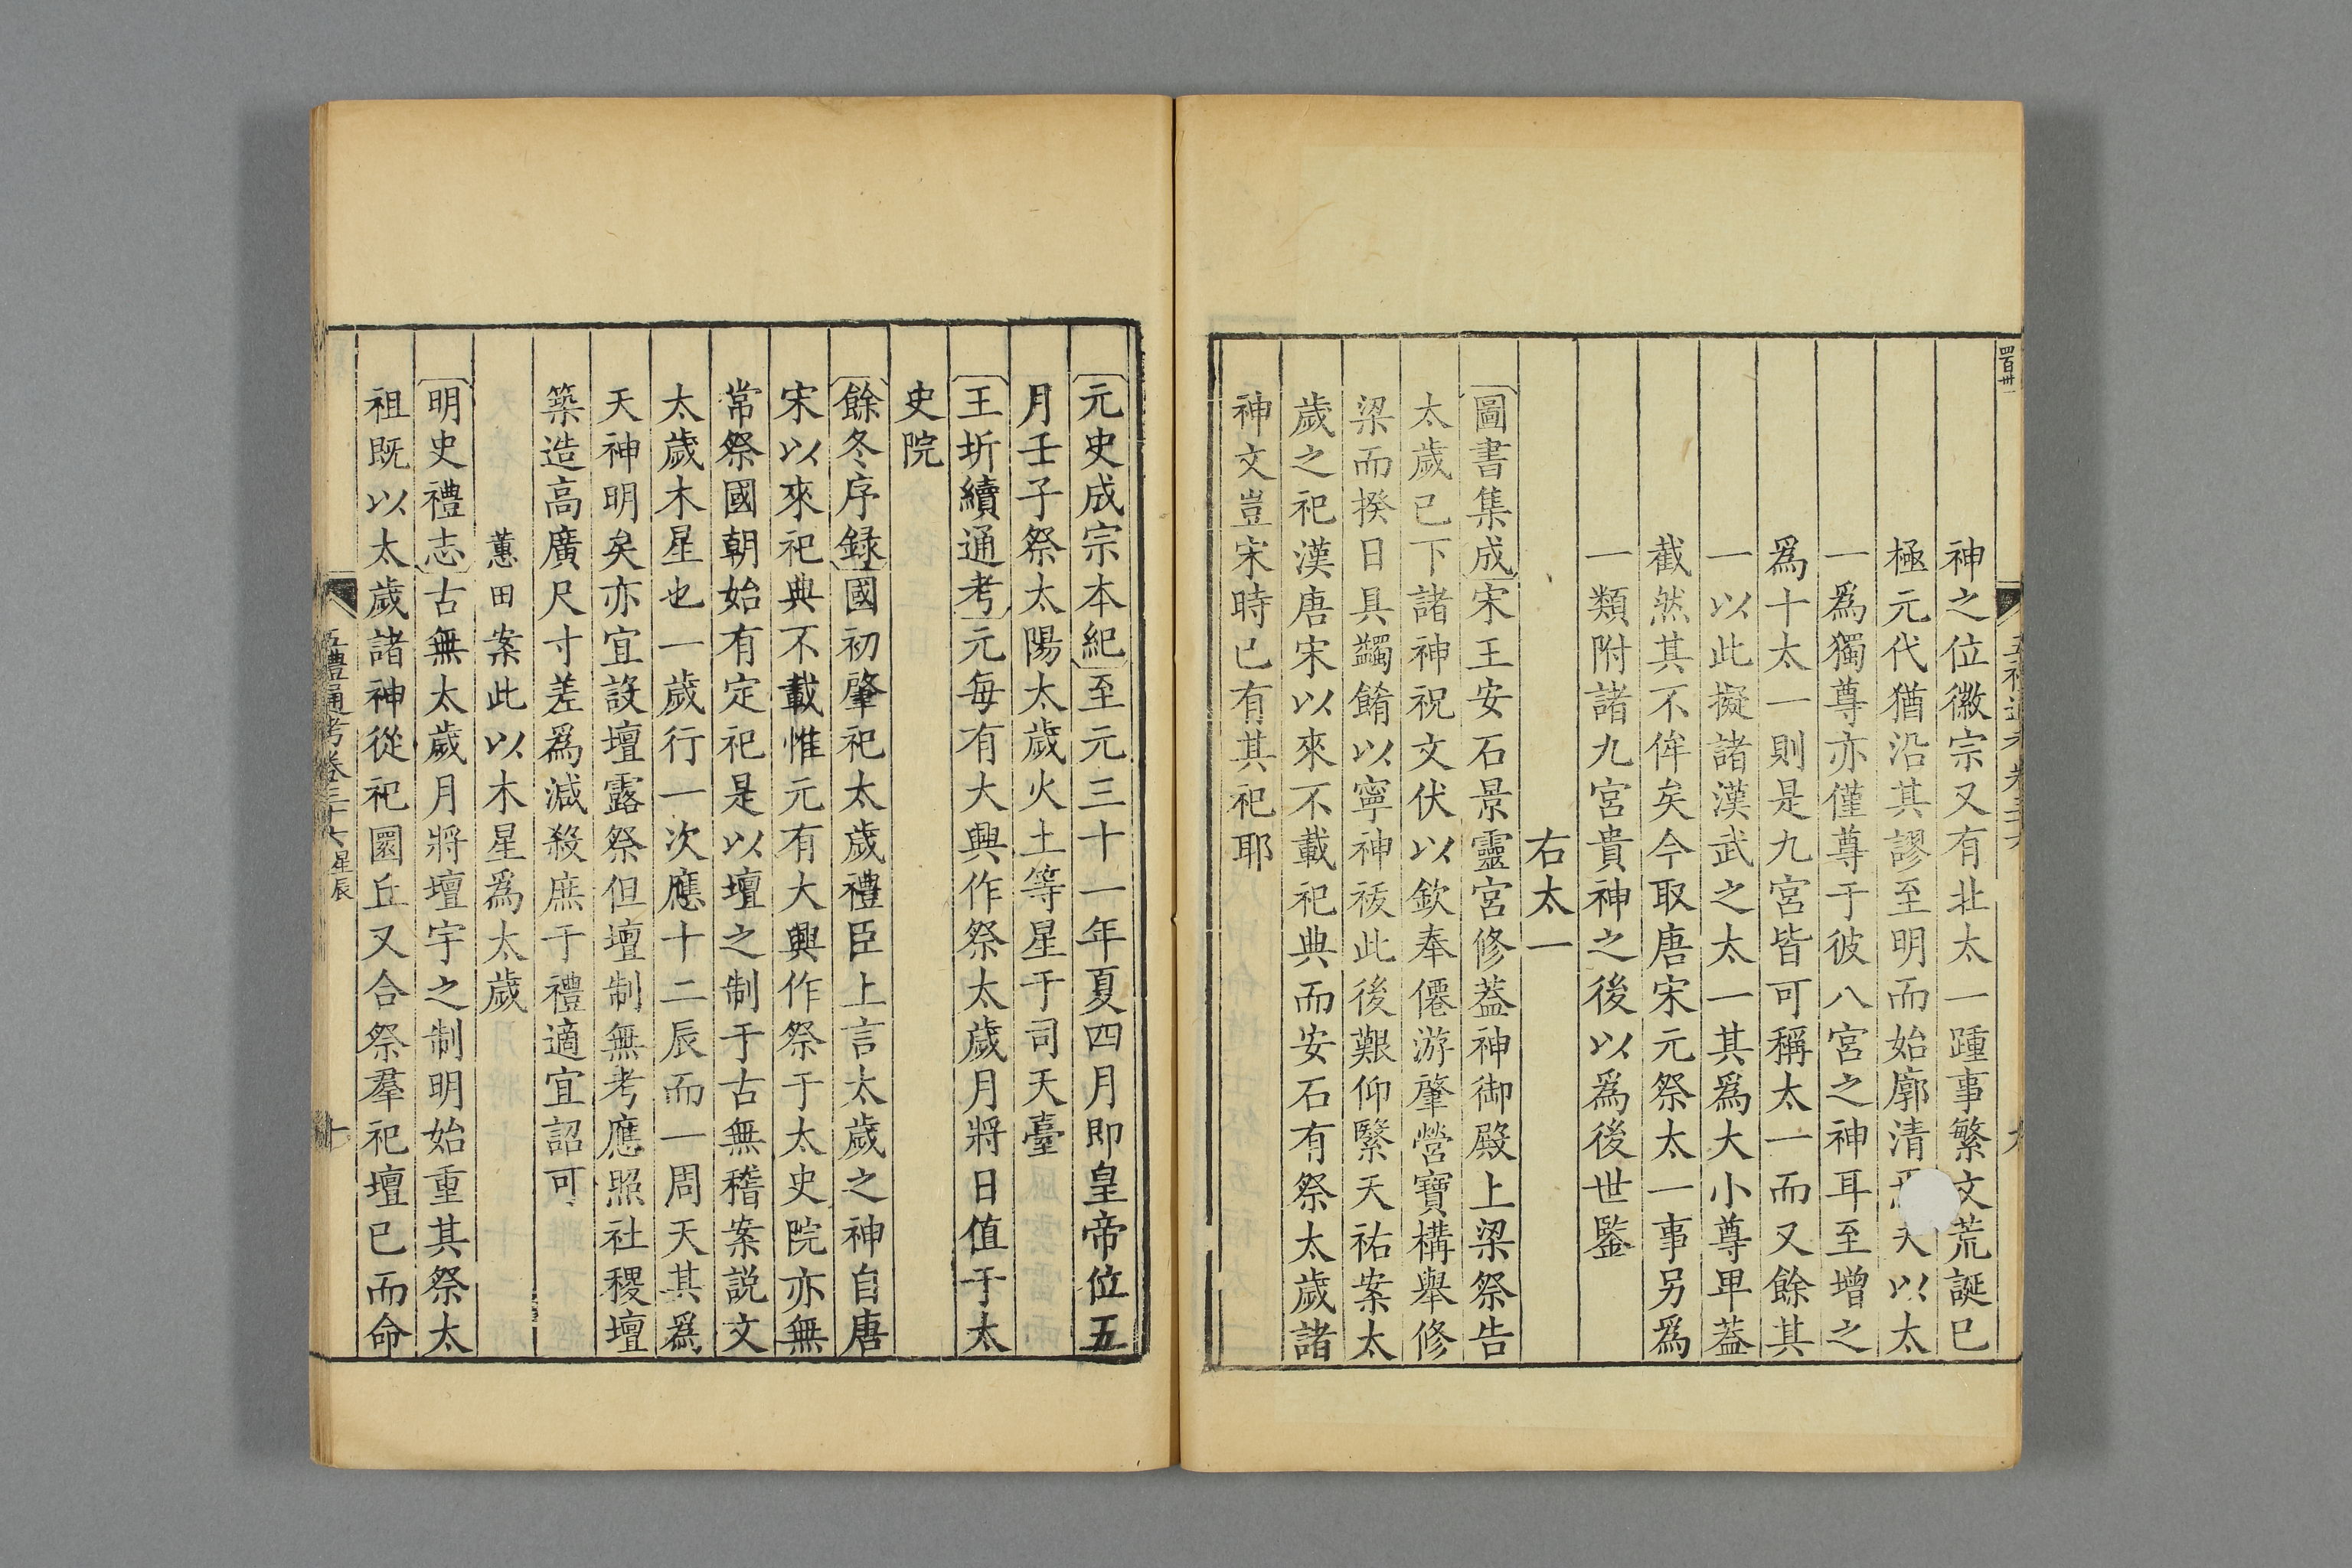 四百卅一
神之位徽宗又有北太一踵事繁文荒誕已
極元代猶沿其謬至明而始廓清矣以太
一爲獨尊亦僅尊于彼八宮之神耳至增之
爲十太一則是九宮皆可稱太一而又餘其
一以此擬諸漢武之太一其爲大小尊卑葢
截然其不侔矣今取唐宋元祭太一事另爲
一類附諸九宮貴神之後以爲後世鑒
右太一
圖書集成宋王安石景靈宮修葢神御殿上梁祭告
太歲已下諸神祝文伏以欽奉僊游肇營寶構舉修
梁而揆日具蠲餚以寧神祓此後艱仰繄天祐案太
歲之祀漢唐宋以來不載祀典而安石有祭太歲諸
神文豈宋時已有其祀耶
元史成宗本紀至元三十一年夏四月即皇帝位五
月壬子祭太陽太歲火土等星于司天臺
王圻續通考元每有大興作祭太歲月將日值于太
史院
餘冬序録國初肇祀太歲禮臣上言太歲之神自唐
宋以來祀典不載惟元有大興作祭于太史院亦無
常祭國朝始有定祀是以壇之制于古無稽案説文
太歲木星也一歲行一次應十二辰而一周天其爲
天神明矣亦宜設壇露祭但壇制無考應照社稷壇
築造高廣尺寸差爲減殺庶于禮適宜詔可
蕙田案此以木星爲太歲
明史禮志古無太歲月將壇宇之制明始重其祭太
祖既以太歲諸神從祀圜丘又合祭羣祀壇已而命
五禮通考卷三十六星辰
十